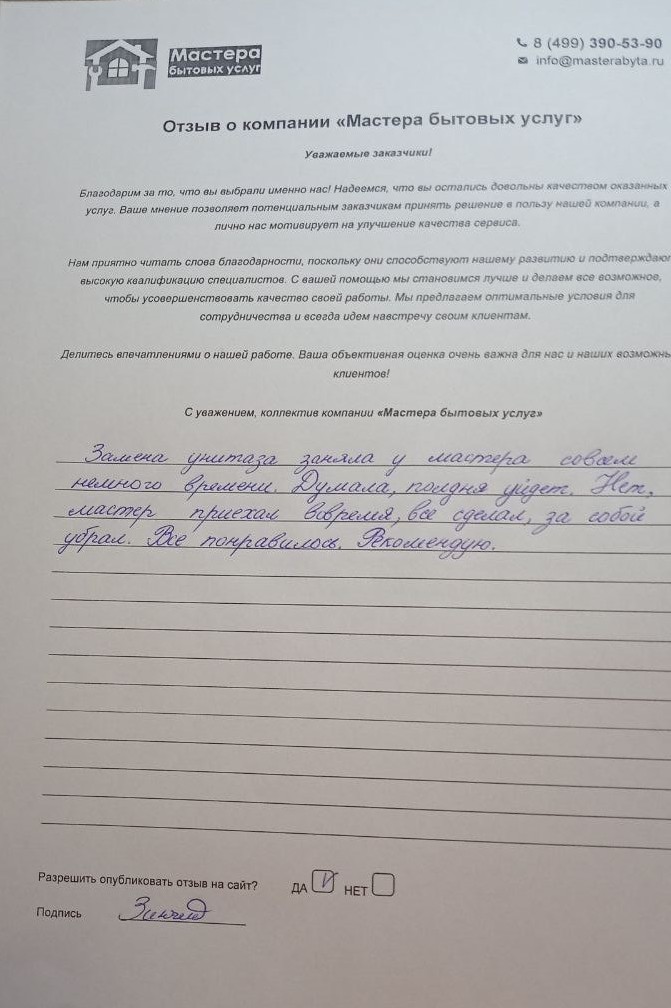 Мастера
бытовых услуг
8 (499) 390-53-90
info@masterabyta.ru
Отзыв о компании «Мастера бытовых услуг»
Уважаемые заказчики!
Благодарим за то, что вы выбрали именно нас! Надеемся, что вы остались довольны качеством оказанных
услуг. Ваше мнение позволяет потенциальным заказчикам принять решение в пользу нашей компании, а
лично нас мотивирует на улучшение качества сервиса.
Нам приятно читать слова благодарности, поскольку они способствуют нашему развитию и подтверждают
высокую квалификацию специалистов. С вашей помощью мы становимся лучше и делаем все возможное,
чтобы усовершенствовать качество своей работы. Мы предлагаем оптимальные условия для
сотрудничества и всегда идем навстречу своим клиентам.
Делитесь впечатлениями о нашей работе. Ваша объективная оценка очень важна для нас и наших возможн
клиентов!
С уважением, коллектив компании «Мастера бытовых услуг»
Замена унитаза заняла у мастера совсем
немного времени. Думала, полдня уйдет. Нет,
мастер приехал вовремя, все сделал, за собой
убрал. Все понравилось. Рекомендую.
Разрешить опубликовать отзыв на сайт? ДА V НЕТ
Подпись